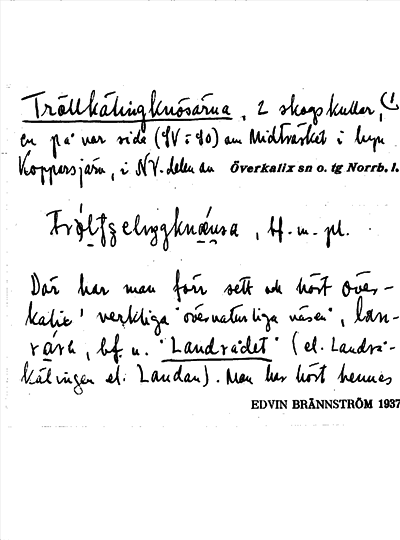 Trollkälingknösarna, 2 skogskullar, (1
en på var sida (SV o. SO) om Midträsket i byn
Koppersjärn, i NV-delen av Överkalix sn o. tg Norrb. l.
bf. m. pl.
Där har man förr sett och hört över-
kalix' verkliga "övernaturliga väsen", lan-
råra, bf n. "Landrådet" (el. Landrå-
kälingen el. Landan). Man har hört hennes
EDVIN BRÄNNSTRÖM 1937